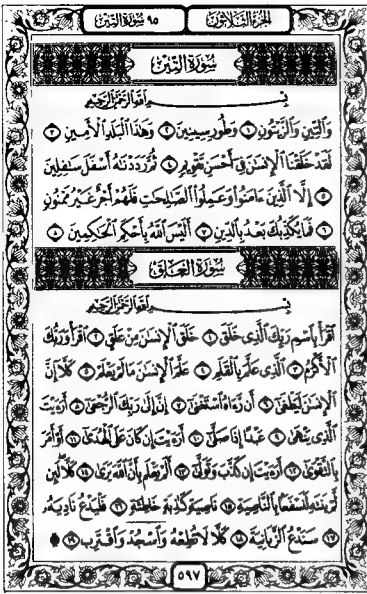 الجزء الثلاثون
٩٥ سورة التين
سورة التين
بسم الله الرحمن الرحيم
وَالتِّينِ وَالزَّيْتُونِ ١ وَطُورِ سِينِينَ ٢ وَهَٰذَا الْبَلَدِ الْأَمِينِ ٣
لَقَدْ خَلَقْنَا الْإِنسَٰنَ فِي أَحْسَنِ تَقْوِيمٍ ٤ ثُمَّ رَدَدْنَٰهُ أَسْفَلَ سَٰفِلِينَ
٥ إِلَّا الَّذِينَ ءَامَنُوا وَعَمِلُوا الصَّٰلِحَٰتِ فَلَهُمْ أَجْرٌ غَيْرُ مَمْنُونٍ
٦ فَمَا يُكَذِّبُكَ بَعْدُ بِالدِّينِ ٧ أَلَيْسَ اللَّهُ بِأَحْكَمِ الْحَٰكِمِينَ ٨
سورة العلق
بسم الله الرحمن الرحيم
اقْرَأْ بِاسْمِ رَبِّكَ الَّذِي خَلَقَ ١ خَلَقَ الْإِنسَٰنَ مِنْ عَلَقٍ ٢ اقْرَأْ وَرَبُّكَ
الْأَكْرَمُ ٣ الَّذِي عَلَّمَ بِالْقَلَمِ ٤ عَلَّمَ الْإِنسَٰنَ مَا لَمْ يَعْلَمْ ٥ كَلَّا إِنَّ
الْإِنسَٰنَ لَيَطْغَىٰ ٦ أَن رَّءَاهُ اسْتَغْنَىٰ ٧ إِنَّ إِلَىٰ رَبِّكَ الرُّجْعَىٰ ٨ أَرَءَيْتَ
الَّذِي يَنْهَىٰ ٩ عَبْدًا إِذَا صَلَّىٰ ١٠ أَرَءَيْتَ إِن كَانَ عَلَى الْهُدَىٰ ١١ أَوْ أَمَرَ
بِالتَّقْوَىٰ ١٢ أَرَءَيْتَ إِن كَذَّبَ وَتَوَلَّىٰ ١٣ أَلَمْ يَعْلَم بِأَنَّ اللَّهَ يَرَىٰ ١٤ كَلَّا لَئِن
لَّمْ يَنتَهِ لَنَسْفَعًا بِالنَّاصِيَةِ ١٥ نَاصِيَةٍ كَٰذِبَةٍ خَاطِئَةٍ ١٦ فَلْيَدْعُ نَادِيَهُۥ
١٧ سَنَدْعُ الزَّبَانِيَةَ ١٨ كَلَّا لَا تُطِعْهُ وَاسْجُدْ وَاقْتَرِب ١٩
٥٩٧